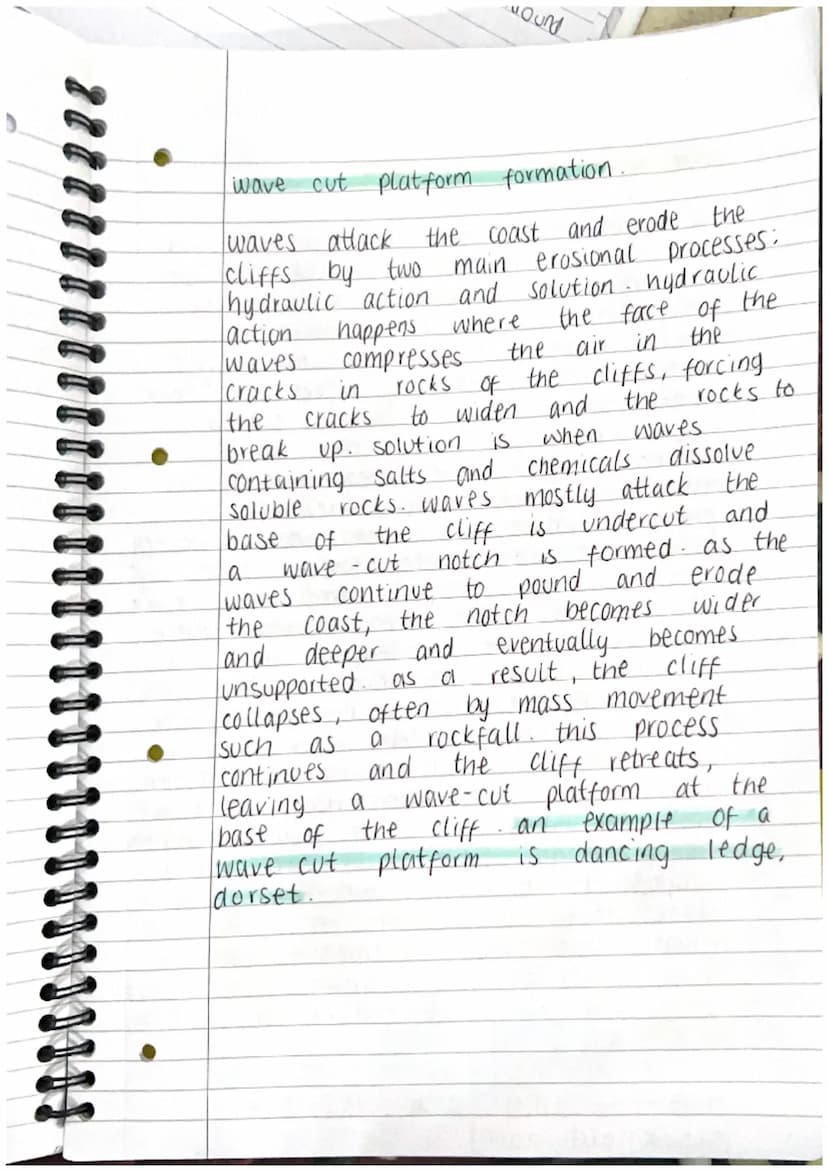 wound
wave cut platform formation.
waves attack the coast and erode the
cliffs by two main erosional processes:
hydraulic action and solution. hydraulic
action happens where the face of the
waves compresses the air in the
cracks in rocks of the cliffs, forcing
the cracks to widen and the rocks to
break up. solution is when waves
containing salts and chemicals dissolve
soluble rocks. waves mostly attack the
base of the cliff is undercut and
a wave-cut notch is formed. as the
waves continue to pound and erode
the coast, the notch becomes wider
and deeper and eventually becomes
unsupported. as a result, the cliff
collapses, often by mass movement
such as a rockfall. this process
continues and the cliff retreats,
leaving a wave-cut platform at the
base of the cliff. an example of a
wave cut platform is dancing ledge,
dorset.